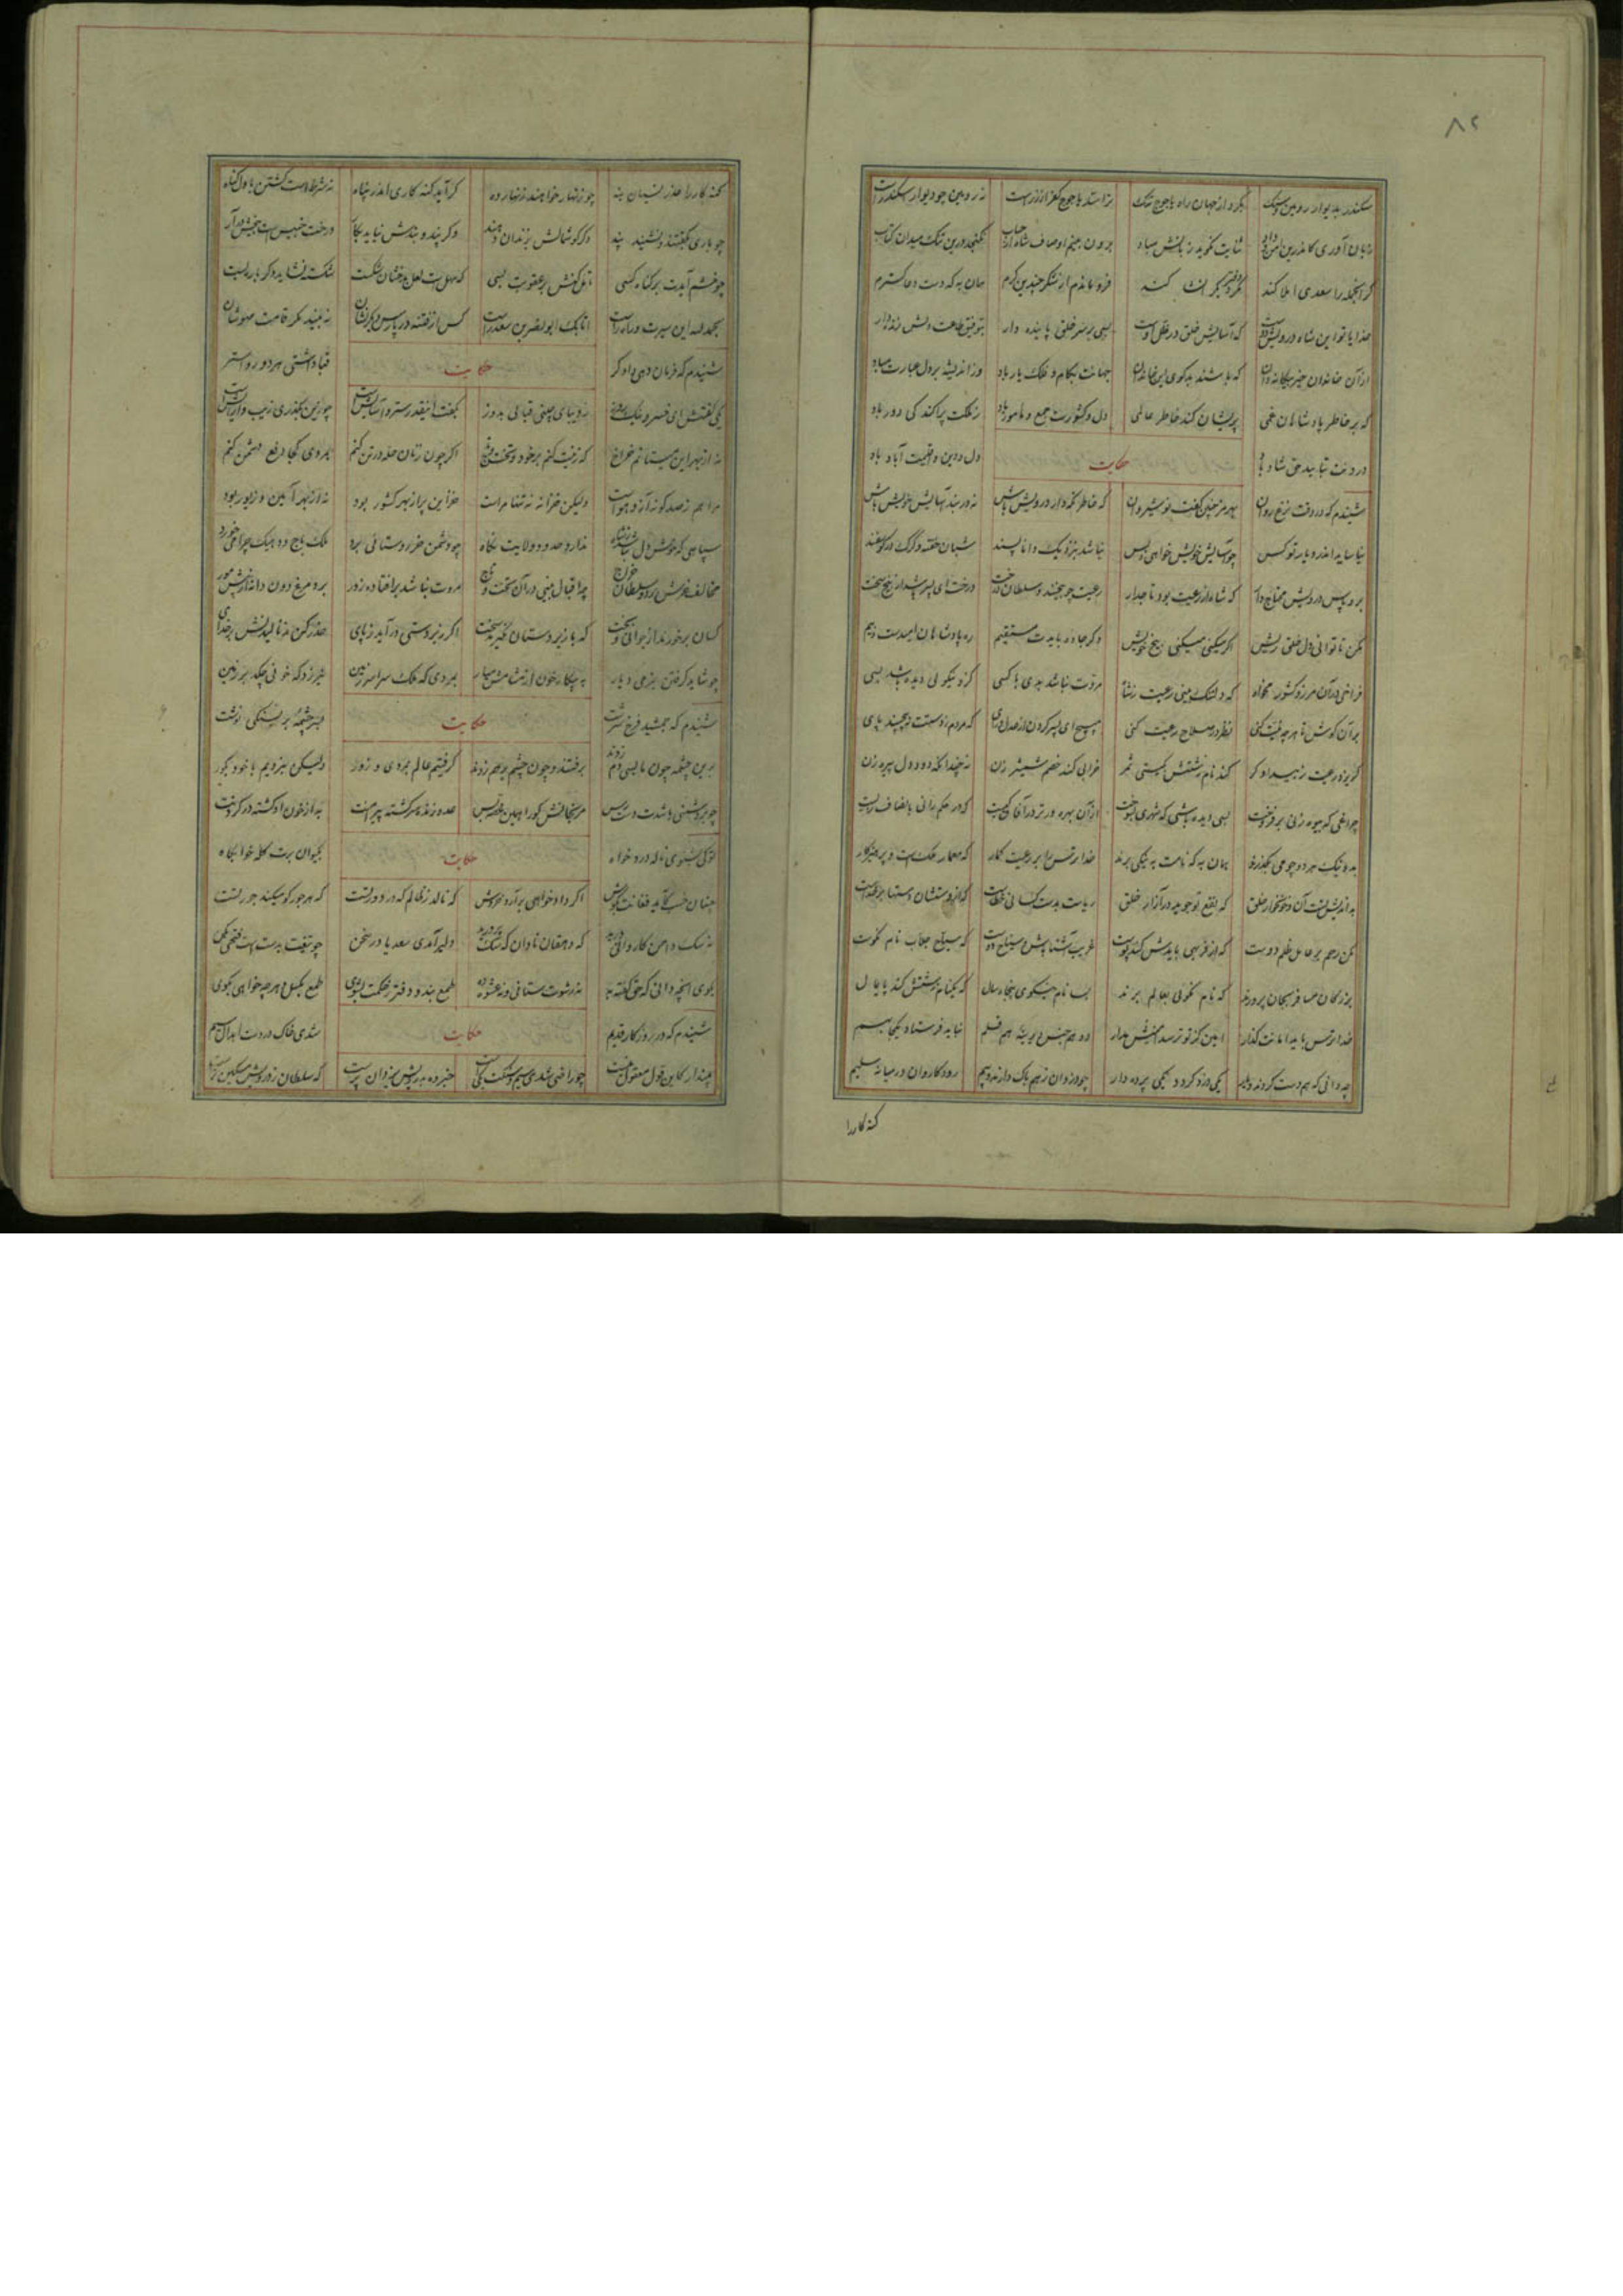 سکندر بدیوار رویین و سنگ بکرد از جهان راه یاجوج تنگ ترا سد یاجوج کفر از زرست نه رویین چو دیوار سکندرست
زبان آوری کاندرین امن و داد ثنایت نگوید زبانش مباد برون بینم اوصاف شاه از حساب نگنجد درین تنگ میدان کتاب
گر آنجمله را سعدی املا کند مگر دفتر دیگر انشا کند فرو ماندم از شکر چندین کرم همان به که دست دعا گسترم
خدایا تو این شاه درویش دوست که آسایش خلق در ظل اوست بسی بر سر خلق پاینده دار بتوفیق طاعت دلش زنده دار
از آن خاندان خیر بیگانه دان که باشند بدگوی این خاندان جهانت بکام و فلک یار باد وز اندیشه بر دل غبارت مباد
که بر خاطر پادشاهان غمی پریشان کند خاطر عالمی دل و کشورت جمع و مامور باد ز ملکت پراکندگی دور باد
درونت بتایید حق شاد باد حکایت دل و دین و اقلیمت آباد باد
شنیدم که در وقت نزع روان بهرمز چنین گفت نوشیروان که خاطر نگهدار درویش باش نه در بند آسایش خویش باش
نیاساید اندر دیار تو کس چو آسایش خویش خواهی و بس نیاید بنزدیک دانا پسند شبان خفته و گرگ در گوسفند
برو پاس درویش محتاج دار که شاه از رعیت بود تاجدار رعیت چو بیخند و سلطان درخت درخت ای پسر باشد از بیخ سخت
مکن تا توانی دل خلق ریش اگر میکنی میکنی بیخ خویش وگر جاده بایدت مستقیم ره پادشاهان امیدست و بیم
فراخی در آن مرز و کشور مخواه که دلتنگ بینی رعیت ز شاه مروت نباشد بدی با کسی کزو نیکوئی دیده باشی بسی
بر آن کوش تا هر چه نیت کنی نظر در صلاح رعیت کنی مپیچ ای پسر گردن از عدل و رای که مردم ز دستت نپیچند پای
گریزد رعیت ز بیدادگر کند نام زشتش بگیتی سمر خرابی کند خصم شمشیر زن نه چندانکه دود دل پیرزن
چراغی که بیوه زنی برفروخت بسی دیده باشی که شهری بسوخت از آن بهره ورتر در آفاق کیست که در حکم رانی بانصاف زیست
بد و نیک هر دو چو می بگذرد همان به که نامت به نیکی برند خدا ترس را بر رعیت گمار که معمار ملکست و پرهیزگار
بداندیش تست آن و خونخوار خلق که نفع تو جوید در آزار خلق ریاست بدست کسانی خطاست که از دستشان دستها بر خداست
مکن رحم بر عامل ظلم دوست که از فربهی بایدش کند پوست غریب آشنا باش و سیاح دوست که سیاح جلاب نام نکوست
بزرگان مسافر بجان پرورند که نام نکوئی بعالم برند
خدا ترس باید امانت گذار امین کز تو ترسد امینش مدار دو هم جنس دیرینه هم قلم نباید فرستاد یکجا بهم
چه دانی که هم دست گردند و یار یکی دزد گردد یکی پرده دار چو دزدان ز هم باک دارند و بیم رود کاروان در میانه سلیم
گنه کار را
گنه کار را عذر نسیان بنه چو زنهار خواهند زنهار ده گر آید گنه کاری اندر پناه نه شرطست کشتن باول گناه
چو باری بگفتند و نشنید پند دگر گوشمالش بزندان و بند وگر پند و بندش نیاید بکار درخت خبیث است بیخش برآر
چو خشم آیدت بر گناه کسی تامل کنش در عقوبت بسی که سهل است لعل بدخشان شکست شکسته نشاید دگر باره بست
بحمد الله این سیرت و راه راست اتابک ابوبکر بن سعد راست کس از فتنه در پارس دیگر نشان نه بیند مگر قامت مهوشان
شنیدم که فرمان دهی دادگر حکایت قبا داشتی هر دو رو آستر
یکی گفتش ای خسرو نیک روز ز دیبای چینی قبائی بدوز بگفت اینقدر ستر و آسایش است چو زین بگذری زیب و آرایش است
نه از بهر این میستانم خراج که زینت کنم بر خود و تخت و تاج اگر چون زنان حله در تن کنم بمردی کجا دفع دشمن کنم
مرا هم ز صد گونه آز و هواست ولیکن خزانه نه تنها مراست خزاین پر از بهر لشکر بود نه از بهر آیین و زیور بود
سپاهی که خوش دل نباشد ز شاه ندارد حدود ولایت نگاه چو دشمن خر روستائی برد ملک باج و ده یک چرا میخورد
مخالف خرش برد و سلطان خراج چه اقبال بینی در آن تخت و تاج مروت نباشد بر افتاده زور برد مرغ دون دانه از پیش مور
کسان برخورند از جوانی و بخت که با زیردستان نگیرند سخت اگر زیر دستی در آید ز پای حذر کن ز نالیدنش بر خدای
چو شاید گرفتن بنرمی دیار به پیکار خون از مشامش میار بمردی که ملک سراسر زمین نیرزد که خونی چکد بر زمین
شنیدم که جمشید فرخ سرشت حکایت بسرچشمه بر بسنگی نوشت
برین چشمه چون ما بسی دم زدند برفتند و چون چشم برهم زدند گرفتیم عالم بمردی و زور ولیکن نبردیم با خود بگور
چو بر دشمنی باشدت دسترس مرنجانش کو را همین غصه بس عدو زنده سرگشته پیرامنت به از خون او کشته در گردنت
تو کی بشنوی ناله داد خواه حکایت بکیوان برت کله خوابگاه
چنان خسب کاید فغانت بگوش اگر دادخواهی برآرد خروش که نالد ز ظالم که در دور تست که هر جور کو میکند جور تست
نه سگ دامن کاروانی درید که دهقان نادان که سگ پرورید دلیر آمدی سعدیا در سخن چو تیغت بدست است فتحی بکن
بگوی آنچه دانی که حق گفته به نه رشوت ستانی و نه عشوه ده طمع بند و دفتر ز حکمت بشوی طمع بگسل و هر چه خواهی بگوی
شنیدم که در روزگار قدیم حکایت شدی خاک در دست ابدال سیم
مپندار کاین قول معقول نیست چو راضی شدی سیم و سنگت یکیست خبر ده بدرویش یزدان پرست که سلطان ز درویش مسکین ترست